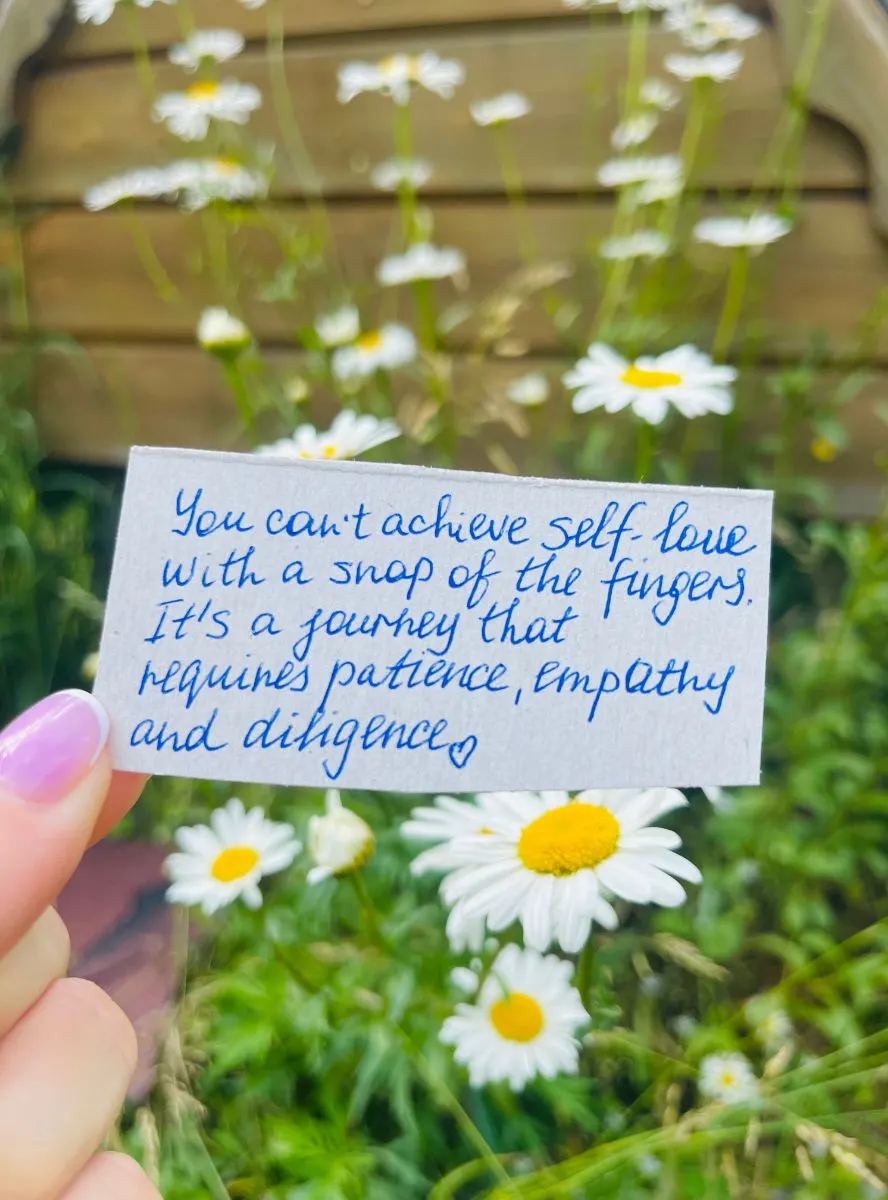 You can't achieve self-love
with a snap of the fingers.
It's a journey that
requires patience, empathy
and diligence♡